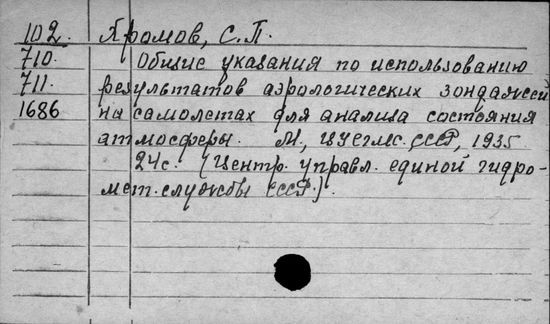 102. Хромов, С.П.
710. Общие указания по использованию
711. результатов аэрологических зондажей
1686 на самолетах для анализа состояния
атмосферы. М., ЦУЕГМС СССР, 1935
24с. (Центр. управл. единой гидро-
мет. службы СССР.).